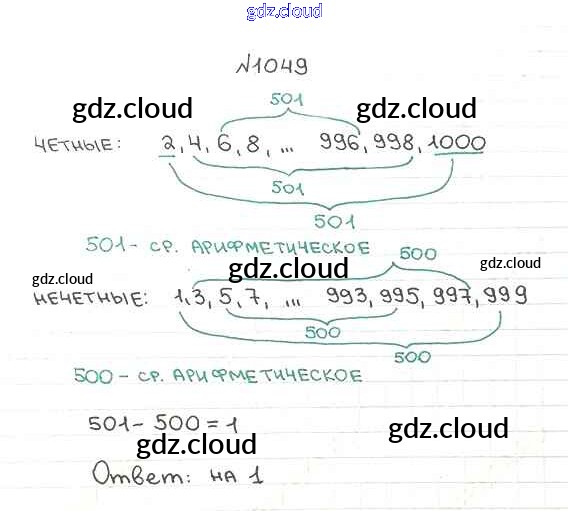 gdz.cloud
№1049
501
gdz.cloud gdz.cloud
ЧЕТНЫЕ: 2, 4, 6, 8, ... 996, 998, 1000
501
501
501 - СР. АРИФМЕТИЧЕСКОЕ 500
gdz.cloud gdz.cloud gdz.cloud
НЕЧЕТНЫЕ: 1, 3, 5, 7, ... 993, 995, 997, 999
500
500
500 - СР. АРИФМЕТИЧЕСКОЕ
501 - 500 = 1
gdz.cloud gdz.cloud
Ответ: на 1